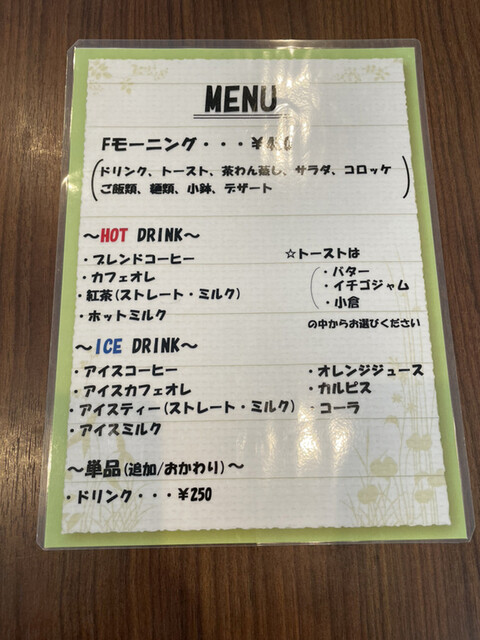 MENU
Fモーニング・・・
(ドリンク、トースト、茶わん蒸し、サラダ、コロッケ
ご飯類、麺類、小鉢、デザート)
～HOT DRINK～
・ブレンドコーヒー
・カフェオレ
・紅茶(ストレート・ミルク)
・ホットミルク
☆トーストは
・バター
・イチゴジャム
・小倉
の中からお選びください
～ICE DRINK～
・アイスコーヒー
・アイスカフェオレ
・アイスティー(ストレート・ミルク)
・アイスミルク
・オレンジジュース
・カルピス
・コーラ
～単品(追加/おかわり)～
・ドリンク・・・¥250